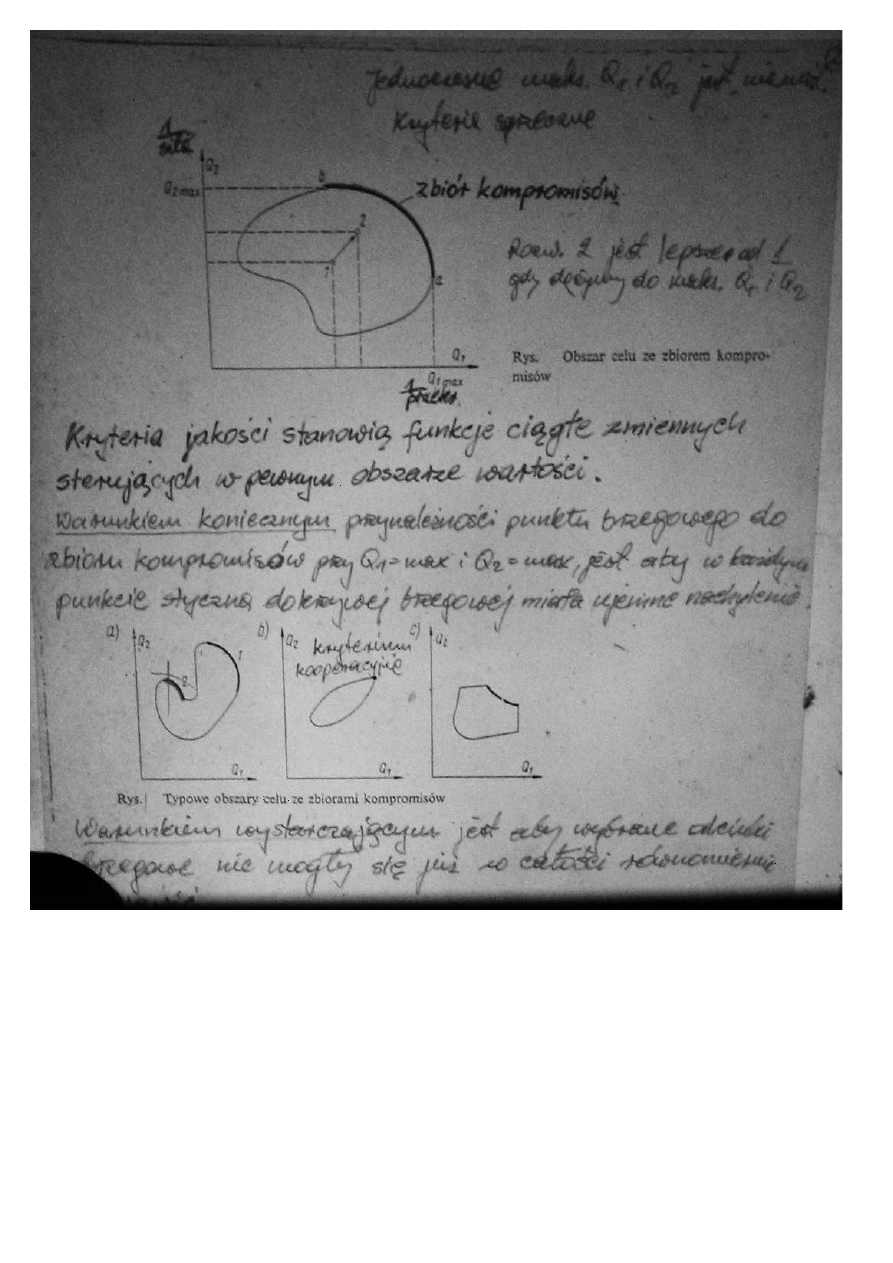 Jednoczesne maks. Q1 i Q2 jest niemoż.
Kryteria sprzeczne
1
siła
Q2
Q2 max
b
zbiór kompromisów
2
1
a
Rozw. 2 jest lepsze od 1
gdy dążymy do maks. Q1 i Q2
Q1
Q1 max
1
Rys. Obszar celu ze zbiorem kompro-
misów
Kryteria jakości stanowią funkcje ciągłe zmiennych
sterujących w pewnym obszarze wartości.
Warunkiem koniecznym przynależności punktu brzegowego do
zbioru kompromisów przy Q1=max i Q2=max, jest aby w każdym
punkcie styczna do krzywej brzegowej miała ujemne nachylenie.
a)
Q2
1
2
Q1
b)
Q2
kryterium
kooperacyjne
Q1
c)
Q2
Q1
Rys. Typowe obszary celu ze zbiorami kompromisów
Warunkiem wystarczającym jest aby wybrane odcinki
brzegowe nie mogły się już w całości równomiernie